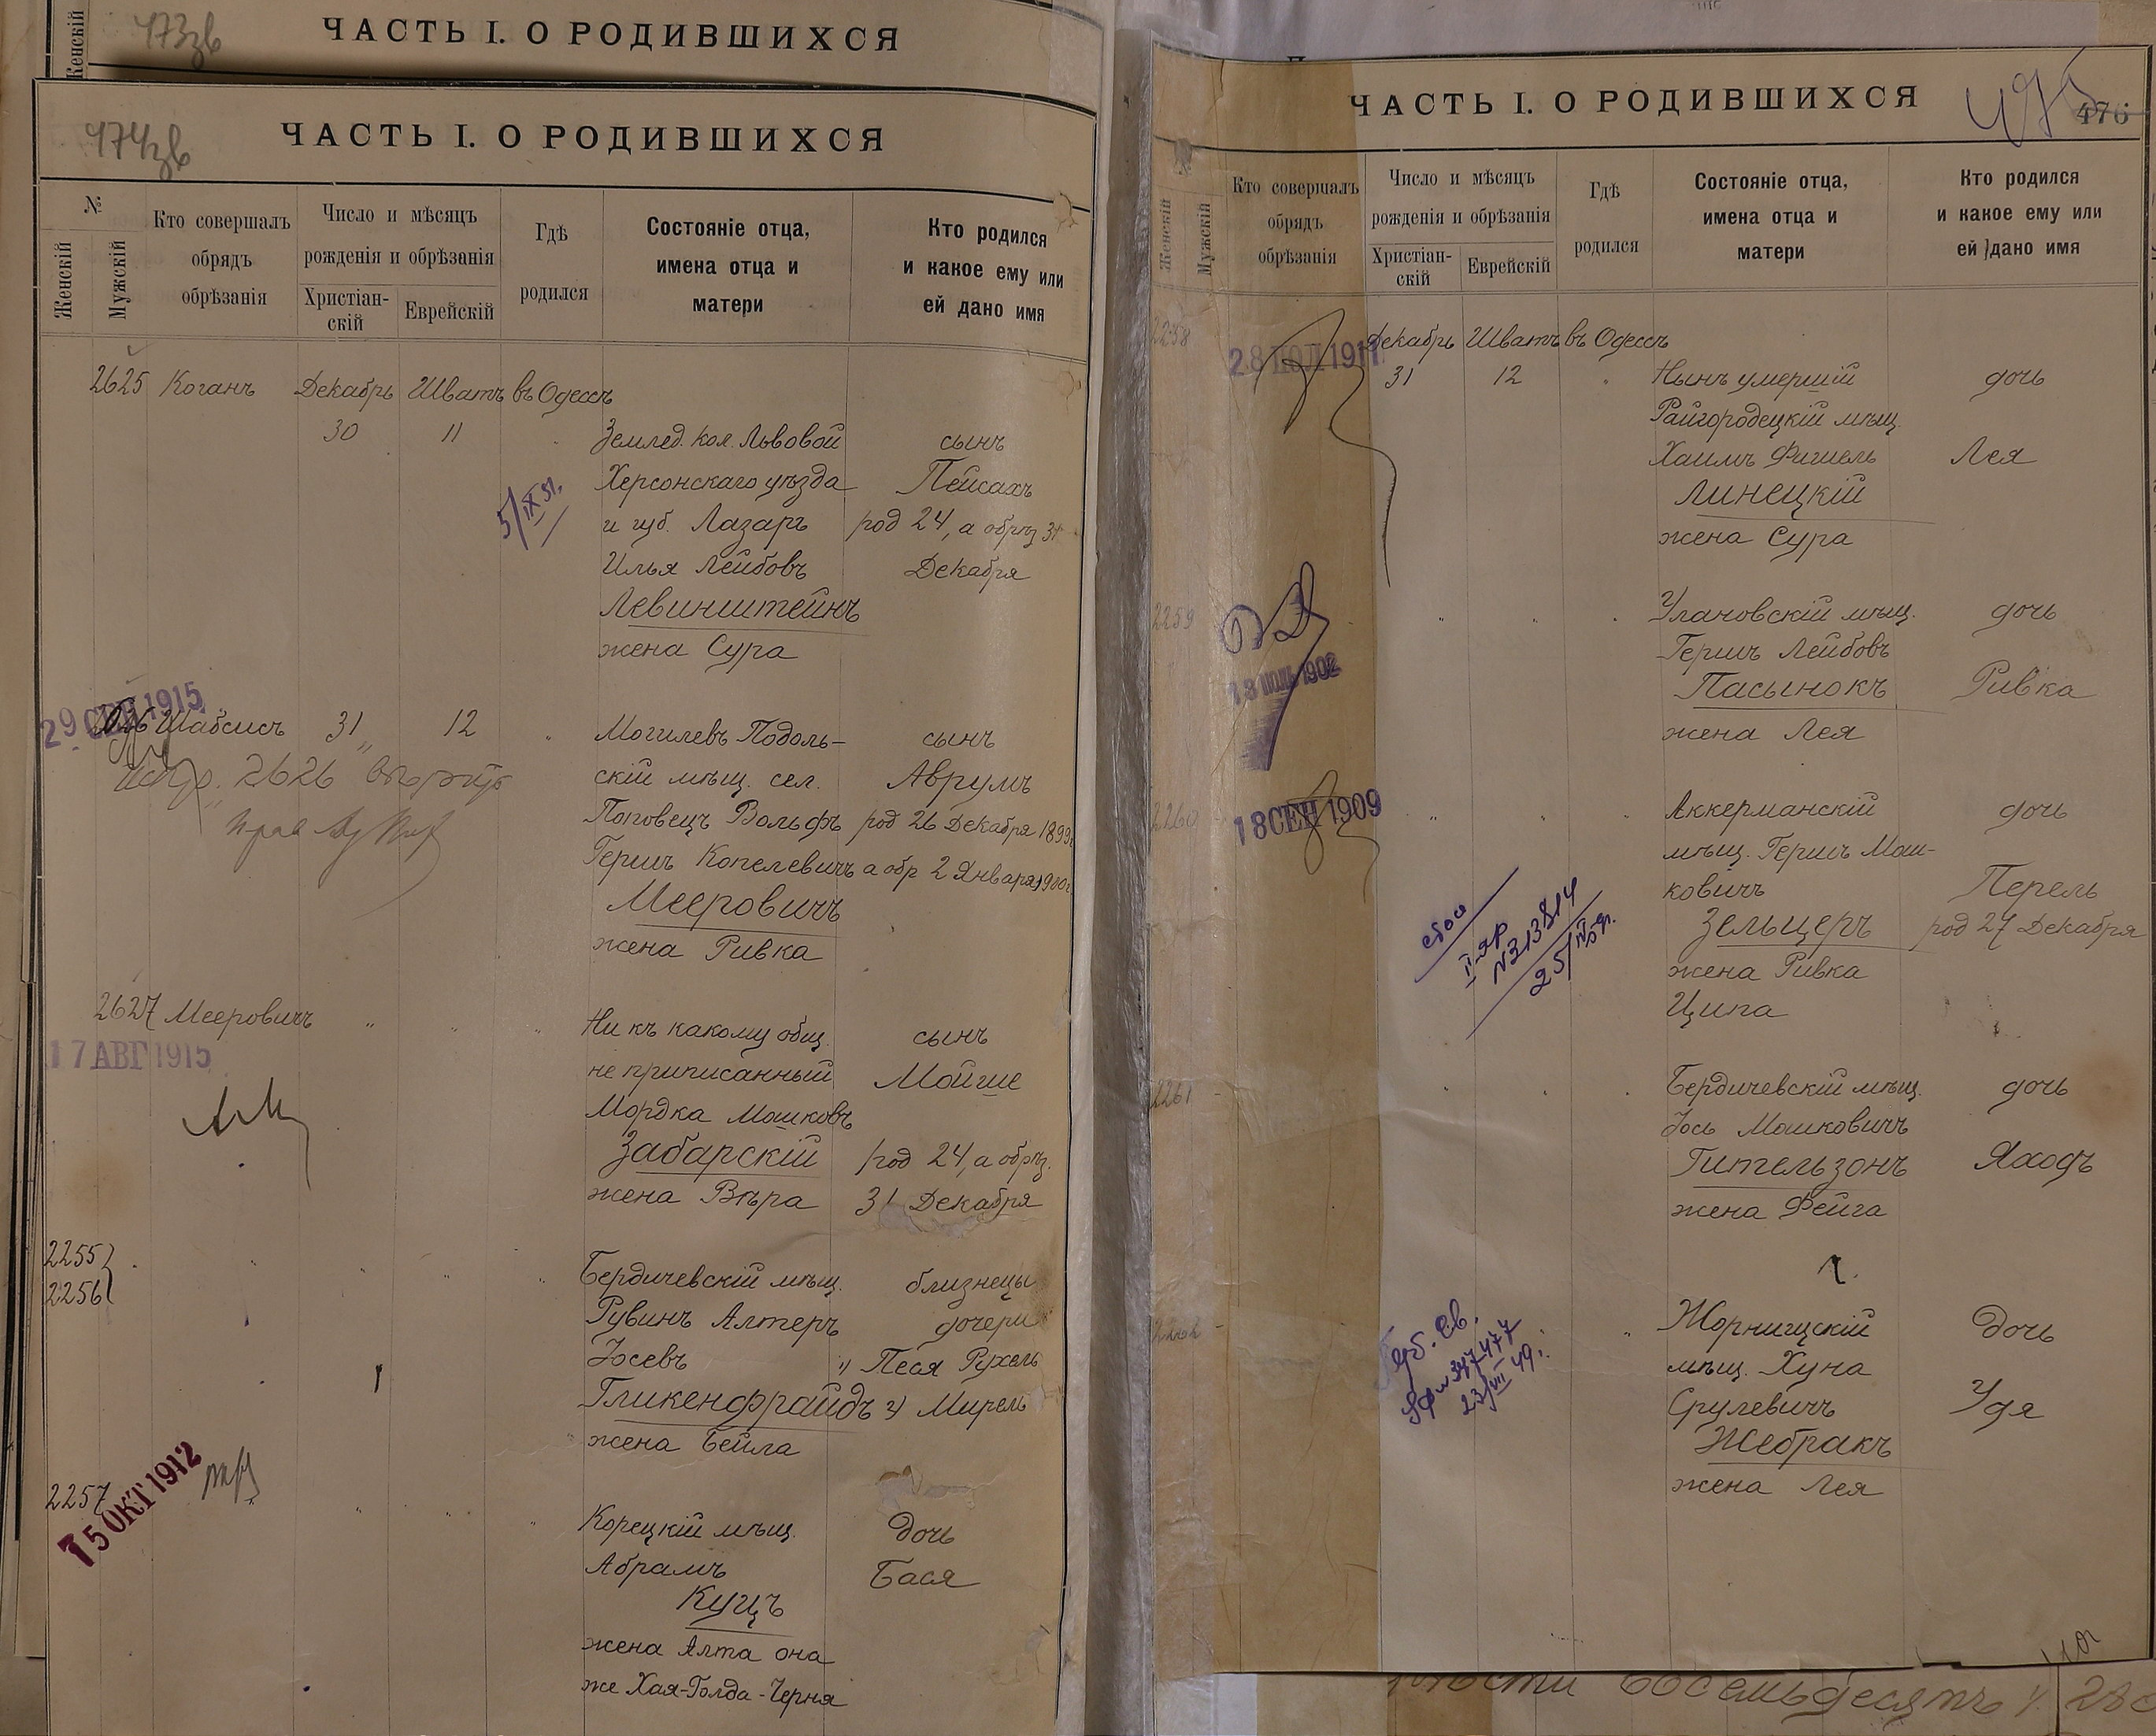 Женскій
473зв
ЧАСТЬ I. О РОДИВШИХСЯ
474зв
ЧАСТЬ I. О РОДИВШИХСЯ
№
Женскій
Мужскій
Кто совершалъ
обрядъ
обрѣзанія
Число и мѣсяцъ
рожденія и обрѣзанія
Христіан-
скій
Еврейскій
Гдѣ
родился
Состояніе отца,
имена отца и
матери
Кто родился
и какое ему или
ей дано имя
2625 Коганъ Декабрь Шватъ въ Одессѣ
30 11 Землед. кол. Львовой сынъ
Херсонскаго уѣзда Пейсахъ
5/IX 51.
и губ. Лазарь род 24, а обрѣз 31
Илья Лейбовъ Декабря
Левинштейнъ
жена Сура
29 СЕН 1915
2626 Шабсисъ 31 12 " Могилевъ Подоль- сынъ
испр. 2626
скій мѣщ. сел. Аврумъ
Поповецъ Вольфъ род 26 Декабря 1899г
Гершъ Копелевичъ а обр 2 Января 1900г
Мееровичъ
жена Ривка
2627 Мееровичъ " " " Ни къ какому общ. сынъ
17 АВГ 1915
не приписанный Мойше
Мордка Мошковъ
Забарскій род 24, а обрѣз.
жена Вѣра 31 Декабря
2255
2256
Бердичевскій мѣщ. близнецы
Рувинъ Алтеръ дочери
Іосевъ 1) Песя Рухель
Гликенфрайдъ 2) Мирель
жена Бейла
2257
15 ОКТ 1912
Корецкій мѣщ. дочь
Абрамъ Бася
Куцъ
жена Алта она
же Хая-Голда-Черня
ЧАСТЬ I. О РОДИВШИХСЯ
475
476
№
Женскій
Мужскій
Кто совершалъ
обрядъ
обрѣзанія
Число и мѣсяцъ
рожденія и обрѣзанія
Христіан-
скій
Еврейскій
Гдѣ
родился
Состояніе отца,
имена отца и
матери
Кто родился
и какое ему или
ей дано имя
2258 Декабрь Шватъ въ Одессѣ
1911
31 12 " Нынѣ умершій дочь
Райгородецкій мѣщ.
Хаимъ Фишель Лея
Линецкій
жена Сура
2259 " " " Улановскій мѣщ. дочь
Гершъ Лейбовъ
1902
Пасынокъ Ривка
жена Лея
2260 18 СЕН 1909 " " " Аккерманскій дочь
мѣщ. Гершъ Мош-
ковичъ Перель
Зельцеръ род 27 Декабря
жена Ривка
Ципа
N313814
2261 " " Бердичевскій мѣщ. дочь
Іось Мошковичъ
Гительзонъ Яходъ
жена Фейга
2262 " Жорнищскій дочь
мѣщ. Хуна
Срулевичъ Удя
Жебракъ
жена Лея
23/VII 49г.
восемьдесятъ